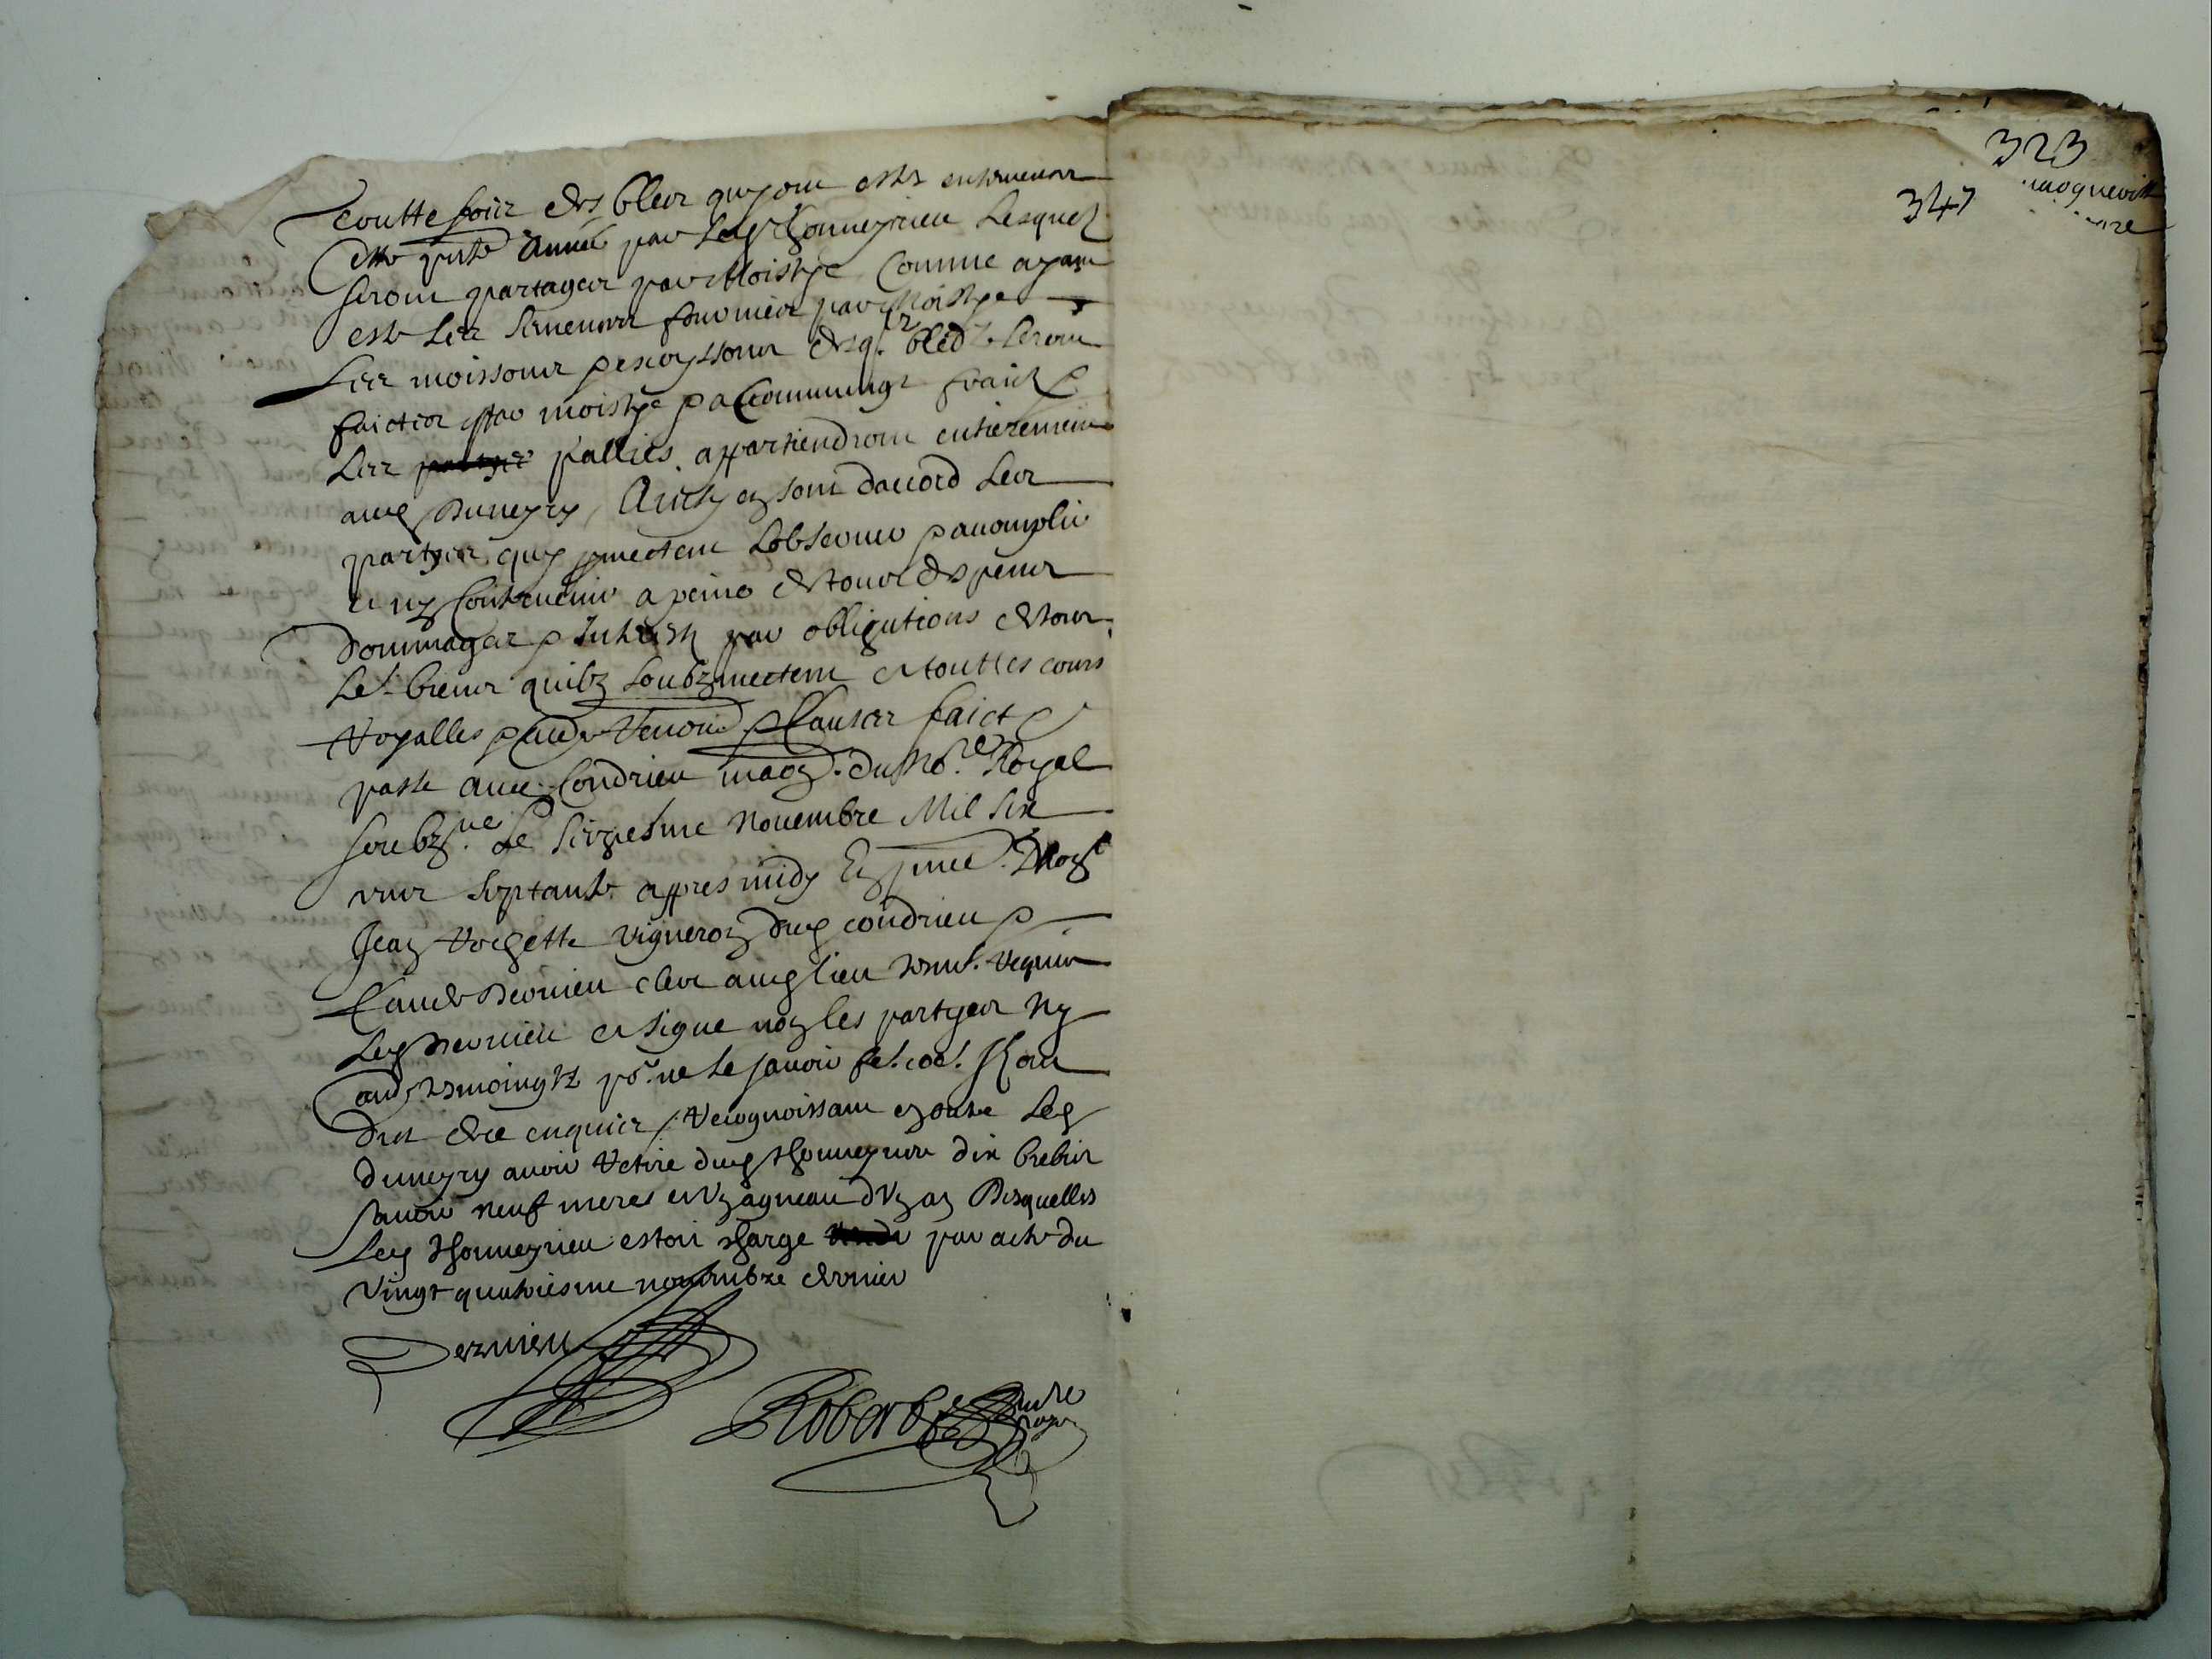 touttefois des bleds quy ont estes ensemencer
Cette pnte Année par led Thonneyrieu Lesquelz
seront partager par Moistye Comme ayant
este Les semences fournies par Moistye
Les moissons p escoyssons desq.lz bledz seront
faictes par moistye p a Communs fraictz p
Les pallies appartiendront entierement
aud Dumeyry, Ainsy en sont daccord Les
partyes quy pmectent Lobserver p accomplir
et ny Contrevenir a peine de tous despens
dommages p Interestz par obligations de tous
Le.s biens quilz soubzmectent a touttes cours
Royalles p aud Renon.d p Clauses faict p
passe aud Condrieu maon. du No.re Royal
soubz.ne Le seiziesme Novembre Mil six
cens septante appres midy En pnce. D
Jean Rochette vigneron dud condrieu p
Claude Dernieu clerc aud lieu tesm.s requis
Led Dernieu a signe non les partyes Ny
aud tesmoingtz po.r ne le savoir de.
de ce enquis / Recognoissant en outre Led
Dumeyry avoir Retire dud Thonneyrieu dix brebis
savoir neuf meres et un agneau dun an Desquelles
Led Thonneyrieu estoit charge par acte du
vingt quatriesme novembre dernier
Dernieu
Robert no.re
Royal
323
347